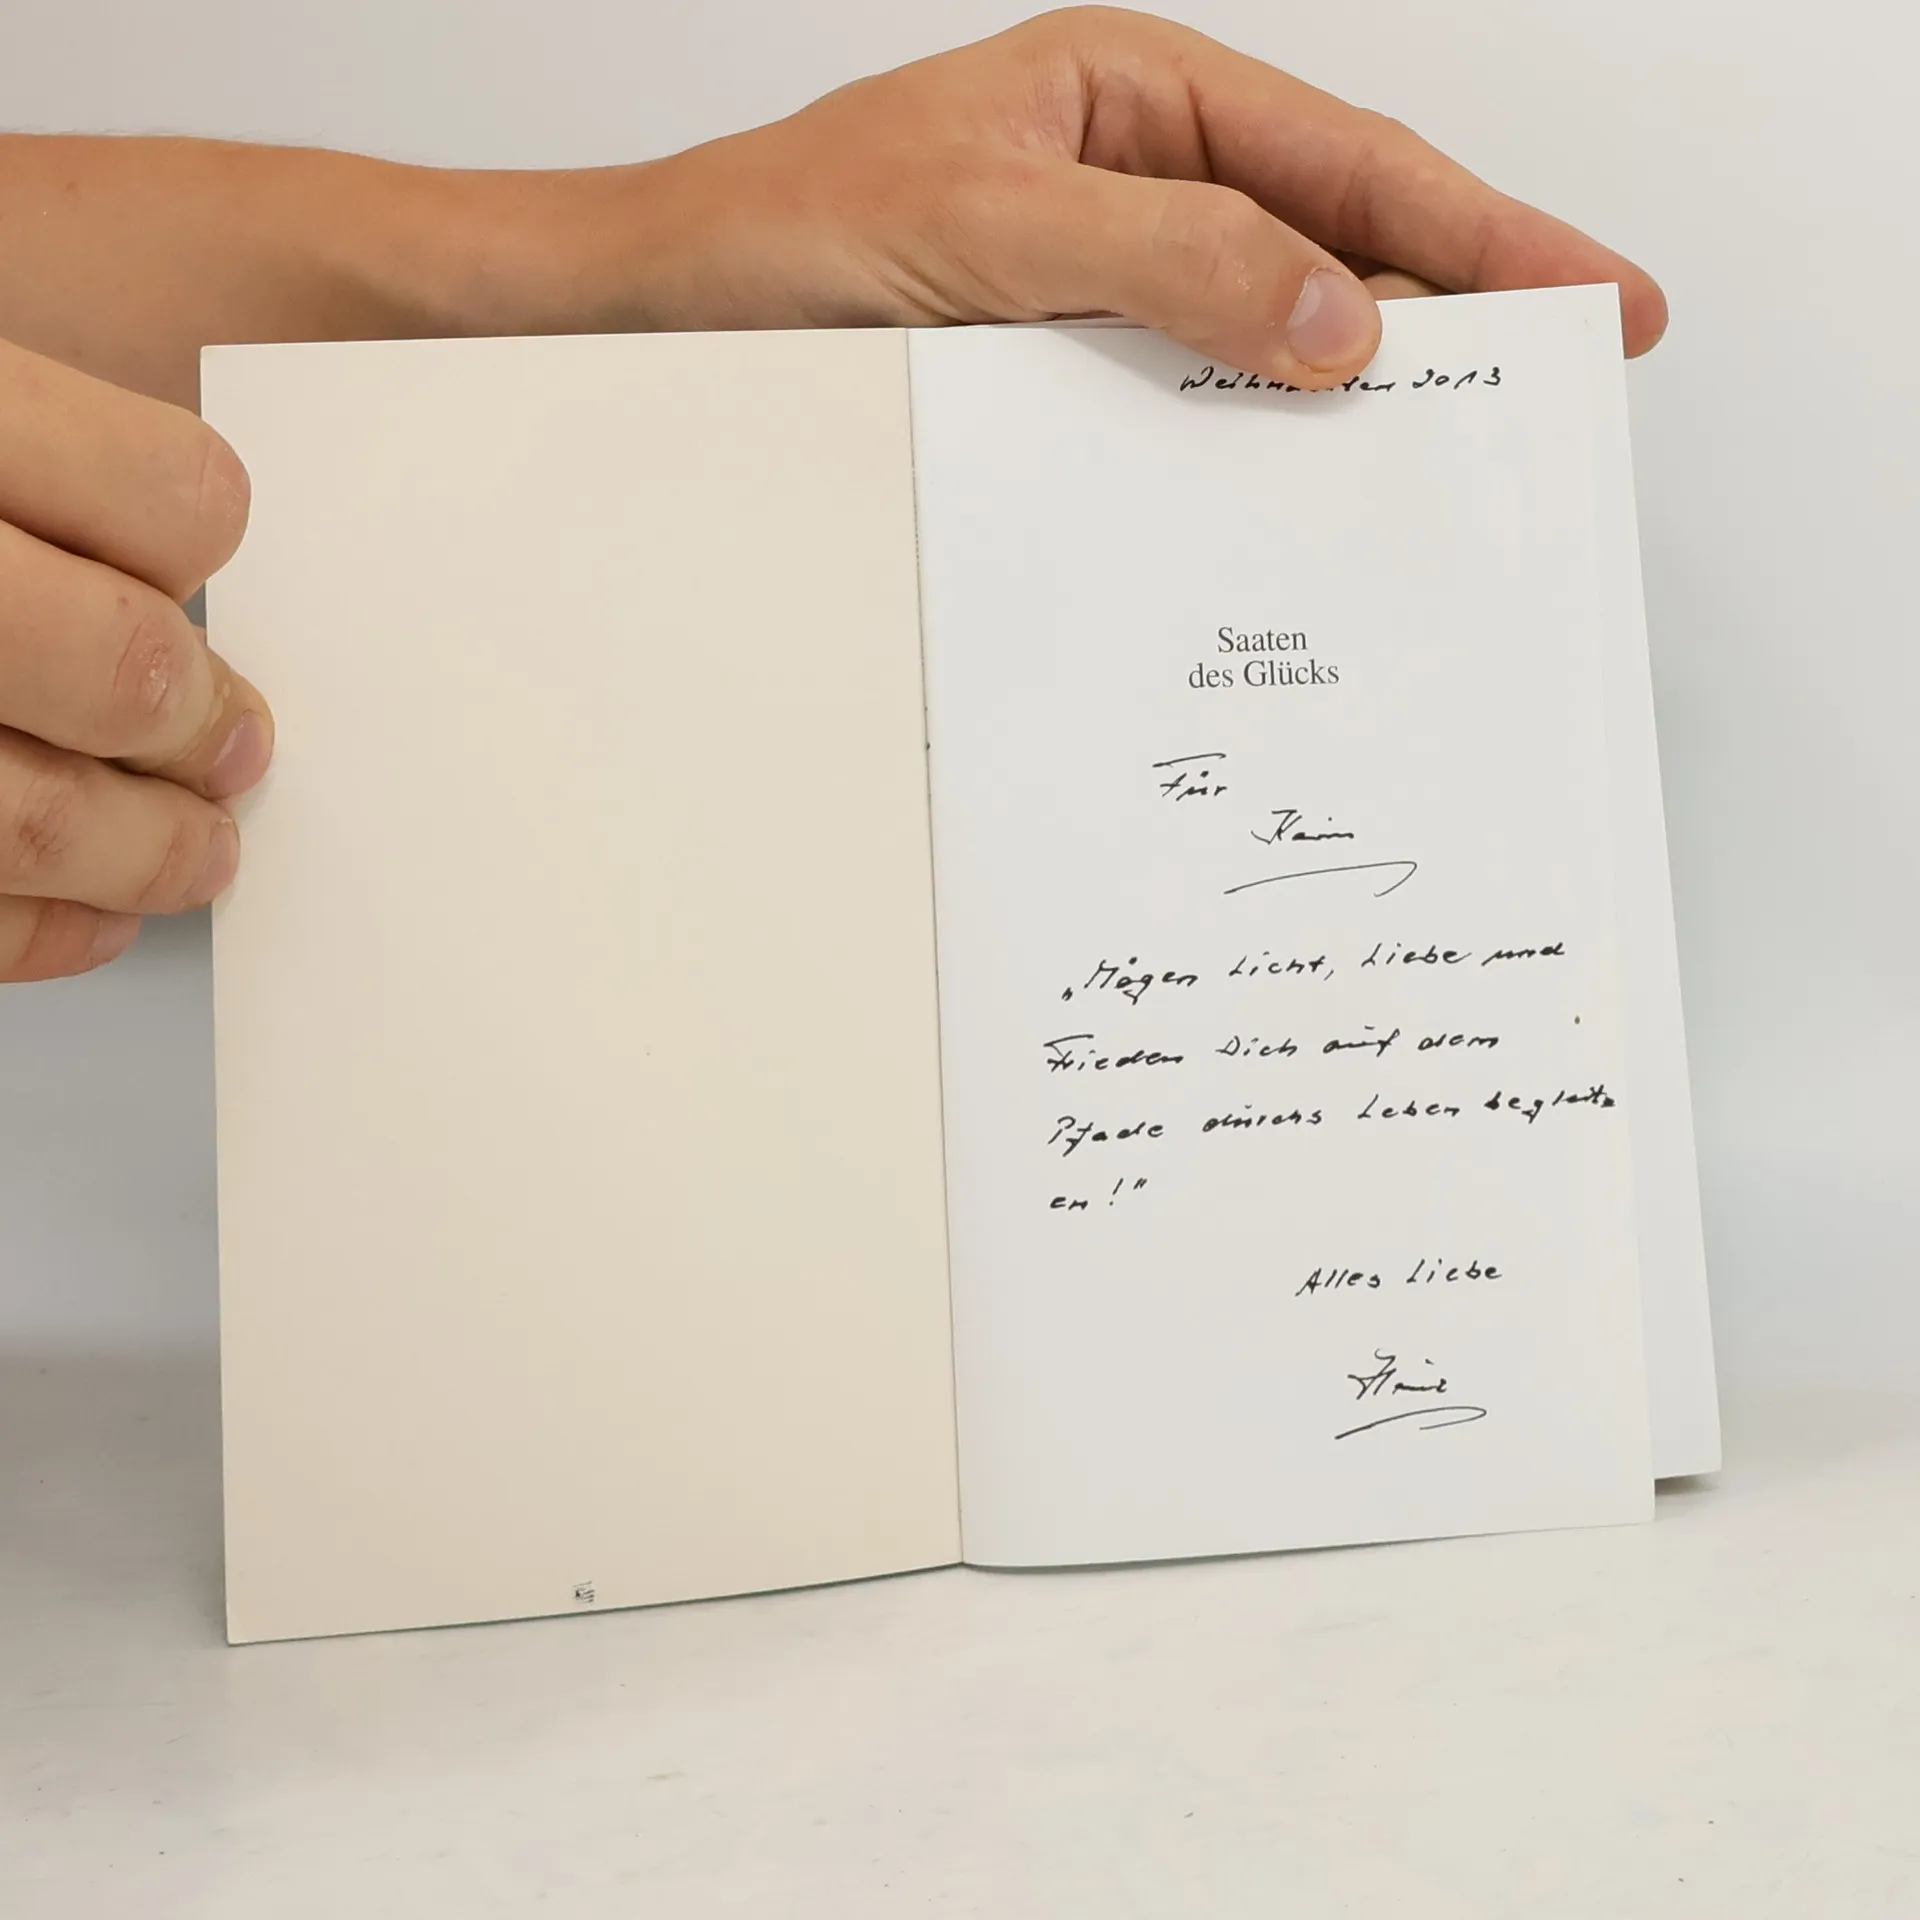 Weihnachten 2013
Saaten
des Glücks
Für
Karin
„Mögen Licht, Liebe und
Frieden Dich auf dem
Pfade durchs Leben begleit-
en!"
Alles Liebe